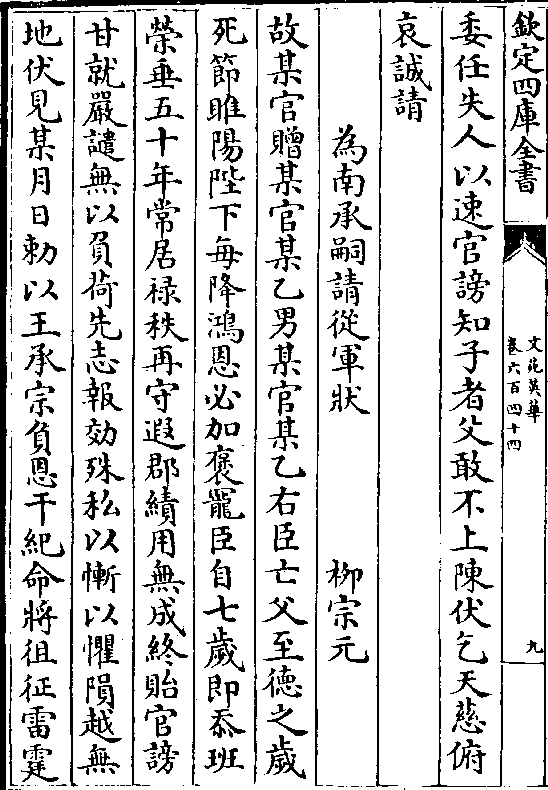 欽定四庫全書
文苑英華
卷六百四十四
九
委任失人以速官謗知子者父敢不上陳伏乞天慈俯
哀誠請
為南承嗣請從軍狀 柳宗元
故某官贈某官某乙男某官某乙右臣亡父至德之歲
死節睢陽陛下每降鴻恩必加褒寵臣自七歲即忝班
榮垂五十年常居禄秩再守遐郡績用無成終貽官謗
甘就嚴譴無以負荷先志報効殊私以慚以懼隕越無
地伏見某月日勅以王承宗負恩干紀命將徂征雷霆